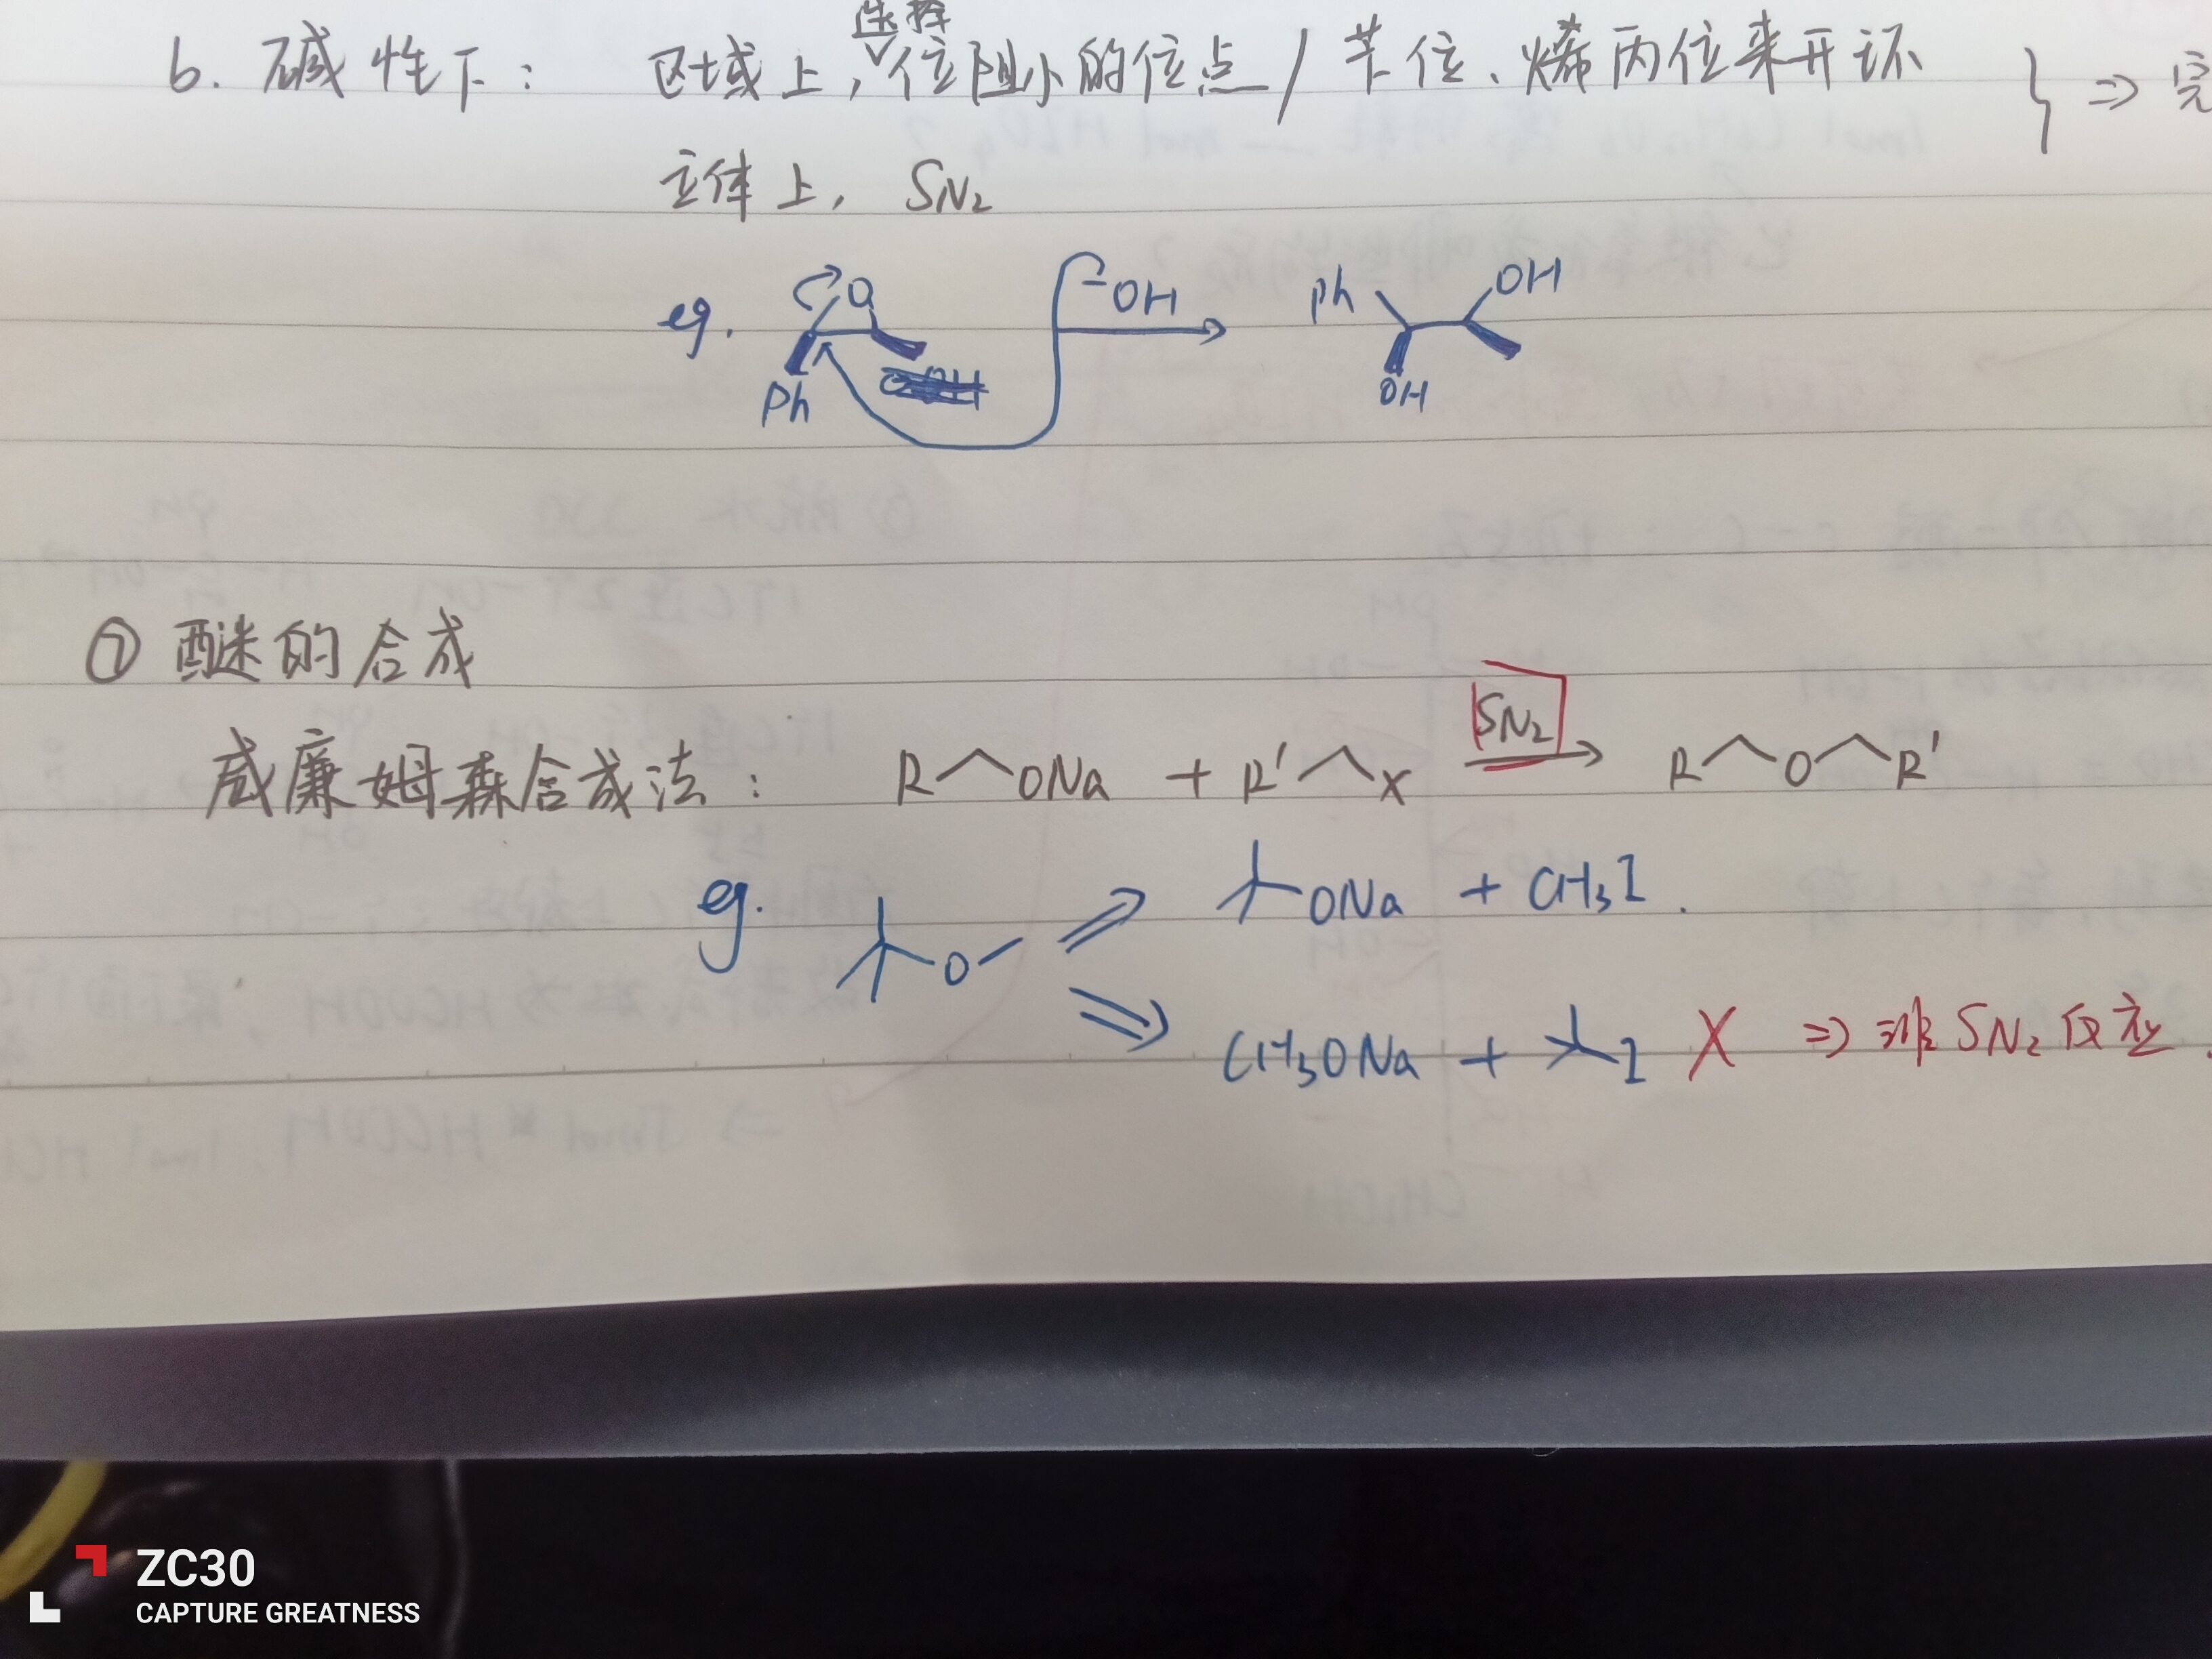 选择
b. 碱性下： 区域上，位阻小的位点/苄位、烯丙位来开环 } ⇒ 完
立体上，SN2
eg. O Ph -OH Ph OH OH
⑦ 醚的合成
威廉姆森合成法： R ONa + R' X SN2 R O R'
eg. O ONa + CH3I.
CH3ONa + I X ⇒ 非SN2反应.
ZC30
CAPTURE GREATNESS